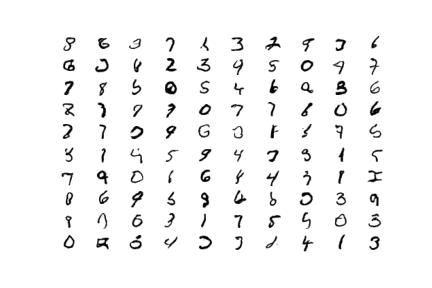 8 6 3 7 1 3 2 9 3 6
6 5 6 2 3 9 5 0 9 7
7 8 5 0 5 4 6 9 3 6
8 1 9 7 0 7 7 8 0 6
2 7 0 9 6 3 1 5 7 5
3 1 4 5 9 4 7 3 1 5
7 9 0 1 6 4 4 3 1
8 6 9 5 9 6 6 0 3 9
9 7 6 3 1 7 8 5 0 3
0 2 8 4 0 3 2 4 1 3